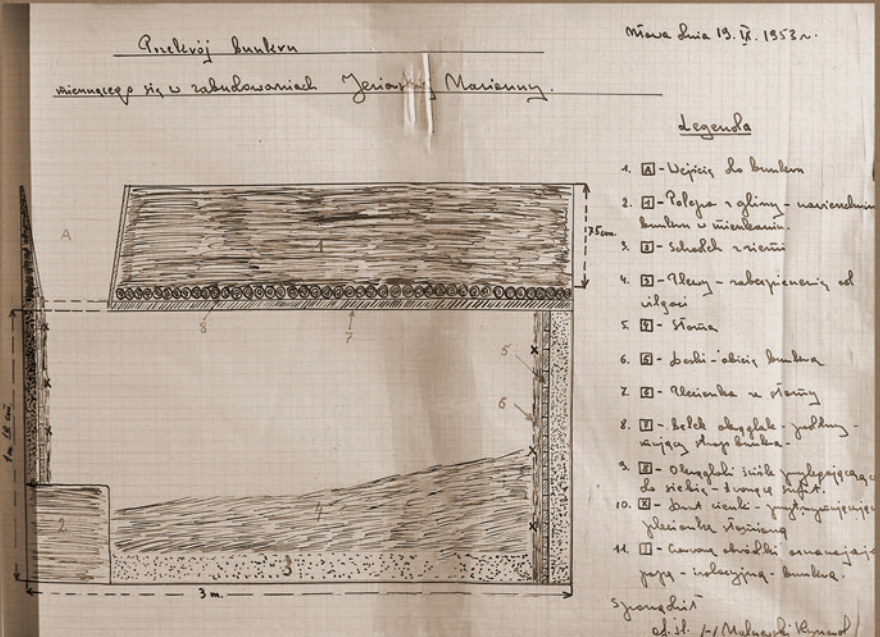 Mława dnia 19.IX.1953 r.
Przekrój bunkru
mieszczącego się w zabudowaniach Marianny.
Legenda
1. A - Wejście do bunkru
2. 1 - Polepa z gliny -
bunkru w mieszkaniu.
3. 2 - Schodek z ziemi
4. 3 - Plewy - zabezpieczenie od
wilgoci
5. 4 - Słoma
6. 5 - Deski - obicie bunkra
7. 6 - Plecionka ze słomy
8. 7 - Belek okrąglak - podtrzy-
mujący strop bunkra.
9. 8 - Okrąglaki ściśle przylegające
do siebie - tworzą sufit.
10. X - Drut cienki - przytrzymujący
plecionkę słomianą
11. - Czerwone obwódki oznaczają
papę - izolacyjną - bunkra.
Sporządził
A
1
75cm.
8
7
5
6
4
2
3
3 m.